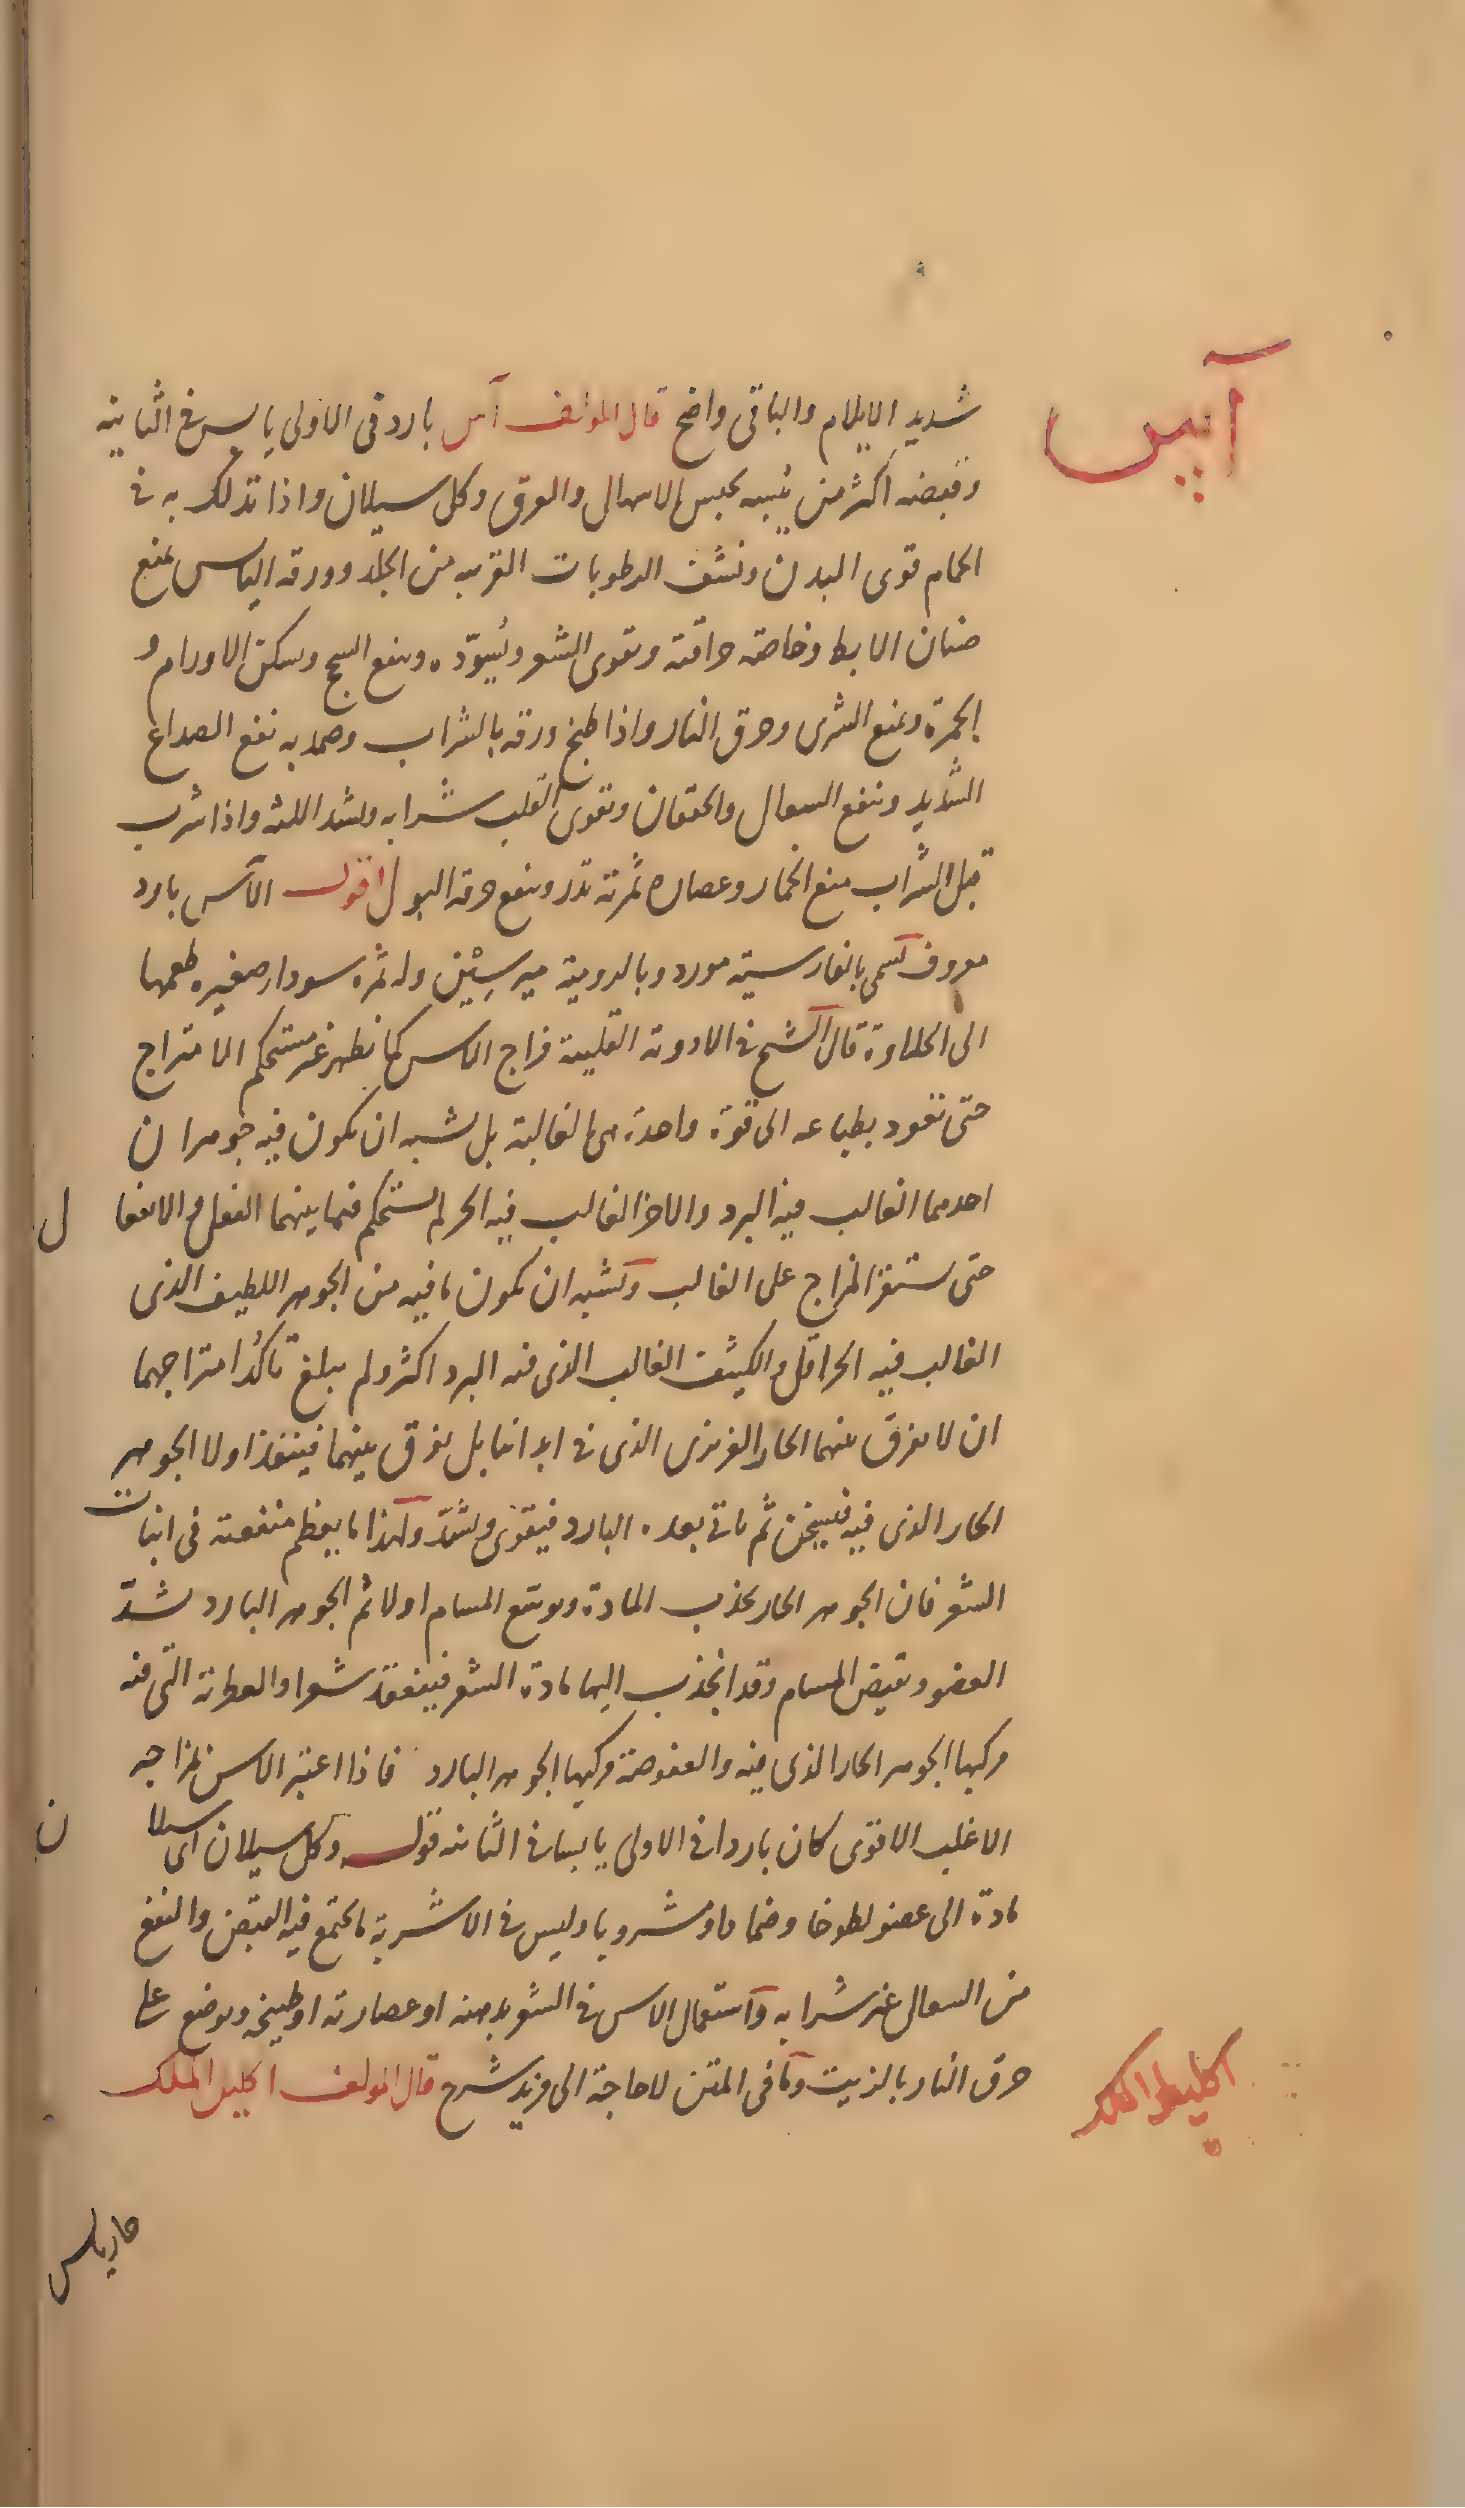 آس
شديد الايلام والباقى واضح قال المولف آس بارد فى الاولى يابس فى الثانية
وقبضه اكثر من يبسه يحبس الاسهال والعرق وكل سيلان واذا تدلك به فى
الحمام قوى البدن ونشف الرطوبات الغريبه من الجلد وورقه اليابس يمنع
صنان الابط وخاصة حراقته ويقوى الشعر ويُسوّده وينفع السحج ويسكن الاورام و
الحمرة ويمنع الشرى وحرق النار واذا طبخ ورقه بالشراب وضمد به نفع الصداع
الشديد وينفع السعال والخفقان ويقوى القلب شرابه ويشد اللثه واذا شرب
قبل الشراب منع الخمار وعصارة ثمرته تدر وينفع حرقة البول اقول الآس بارد
معروف يسمى بالفارسية مورد وبالرومية ميرسِيْن وله ثمره سوداء صغيره طعمها
الى الحلاوة قال الشيخ فى الادوية القلبية مزاج الاس كما يظهر غير مستحكم الامتزاج
حتى تعود بطباعه الى قوة واحدة هى الغالبة بل يشبه ان يكون فيه جوهران
احدهما الغالب فيه البرد والاخر الغالب فيه الحر لم يستحكم فيما بينهما الفعل والانفعال
حتى يستقر المزاج على الغالب ويشبه ان يكون ما فيه من الجوهر اللطيف الذى
الغالب فيه الحر اقل والكثيف الغالب الذى فيه البرد اكثر ولم يبلغ تاكّد امتزاجهما
ان لا يفرق بينهما الحار الغريزى الذى فى ابداننا بل يفرق بينهما فينفذ اولا الجوهر
الحار الذى فيه فيسخن ثم ياتى بعده البارد فيقوى ويشدّ ولهذا ما يعظم منفعته فى انبات
الشعر فان الجوهر الحار يجذب المادة ويوسّع المسام اولا ثم الجوهر البارد يشدّ
العضو ويقبض المسام وقد انجذب اليها مادة الشعر فينعقد شعرا والعطرية التى فيه
مركبها الجوهر الحار الذى فيه والعفوصة مركبها الجوهر البارد فاذا اعتبر الاس بمزاجه
الاغلب الاقوى كان باردا فى الاولى يابسا فى الثانيه قوله وكل سيلان اى سيلان
مادة الى عضو لطوخا وضمادا ومشروبا وليس فى الاشربة ما يجتمع فيه القبض والنفع
من السعال غير شرابه واستعمال الاس فى الشعر بدهنه او عصارته او طبيخه ويوضع على
حرق النار بالزيت وما فى المتن لا حاجة الى مزيد شرح قال المولف اكليل الملك
اكليل الملك
حار يابس